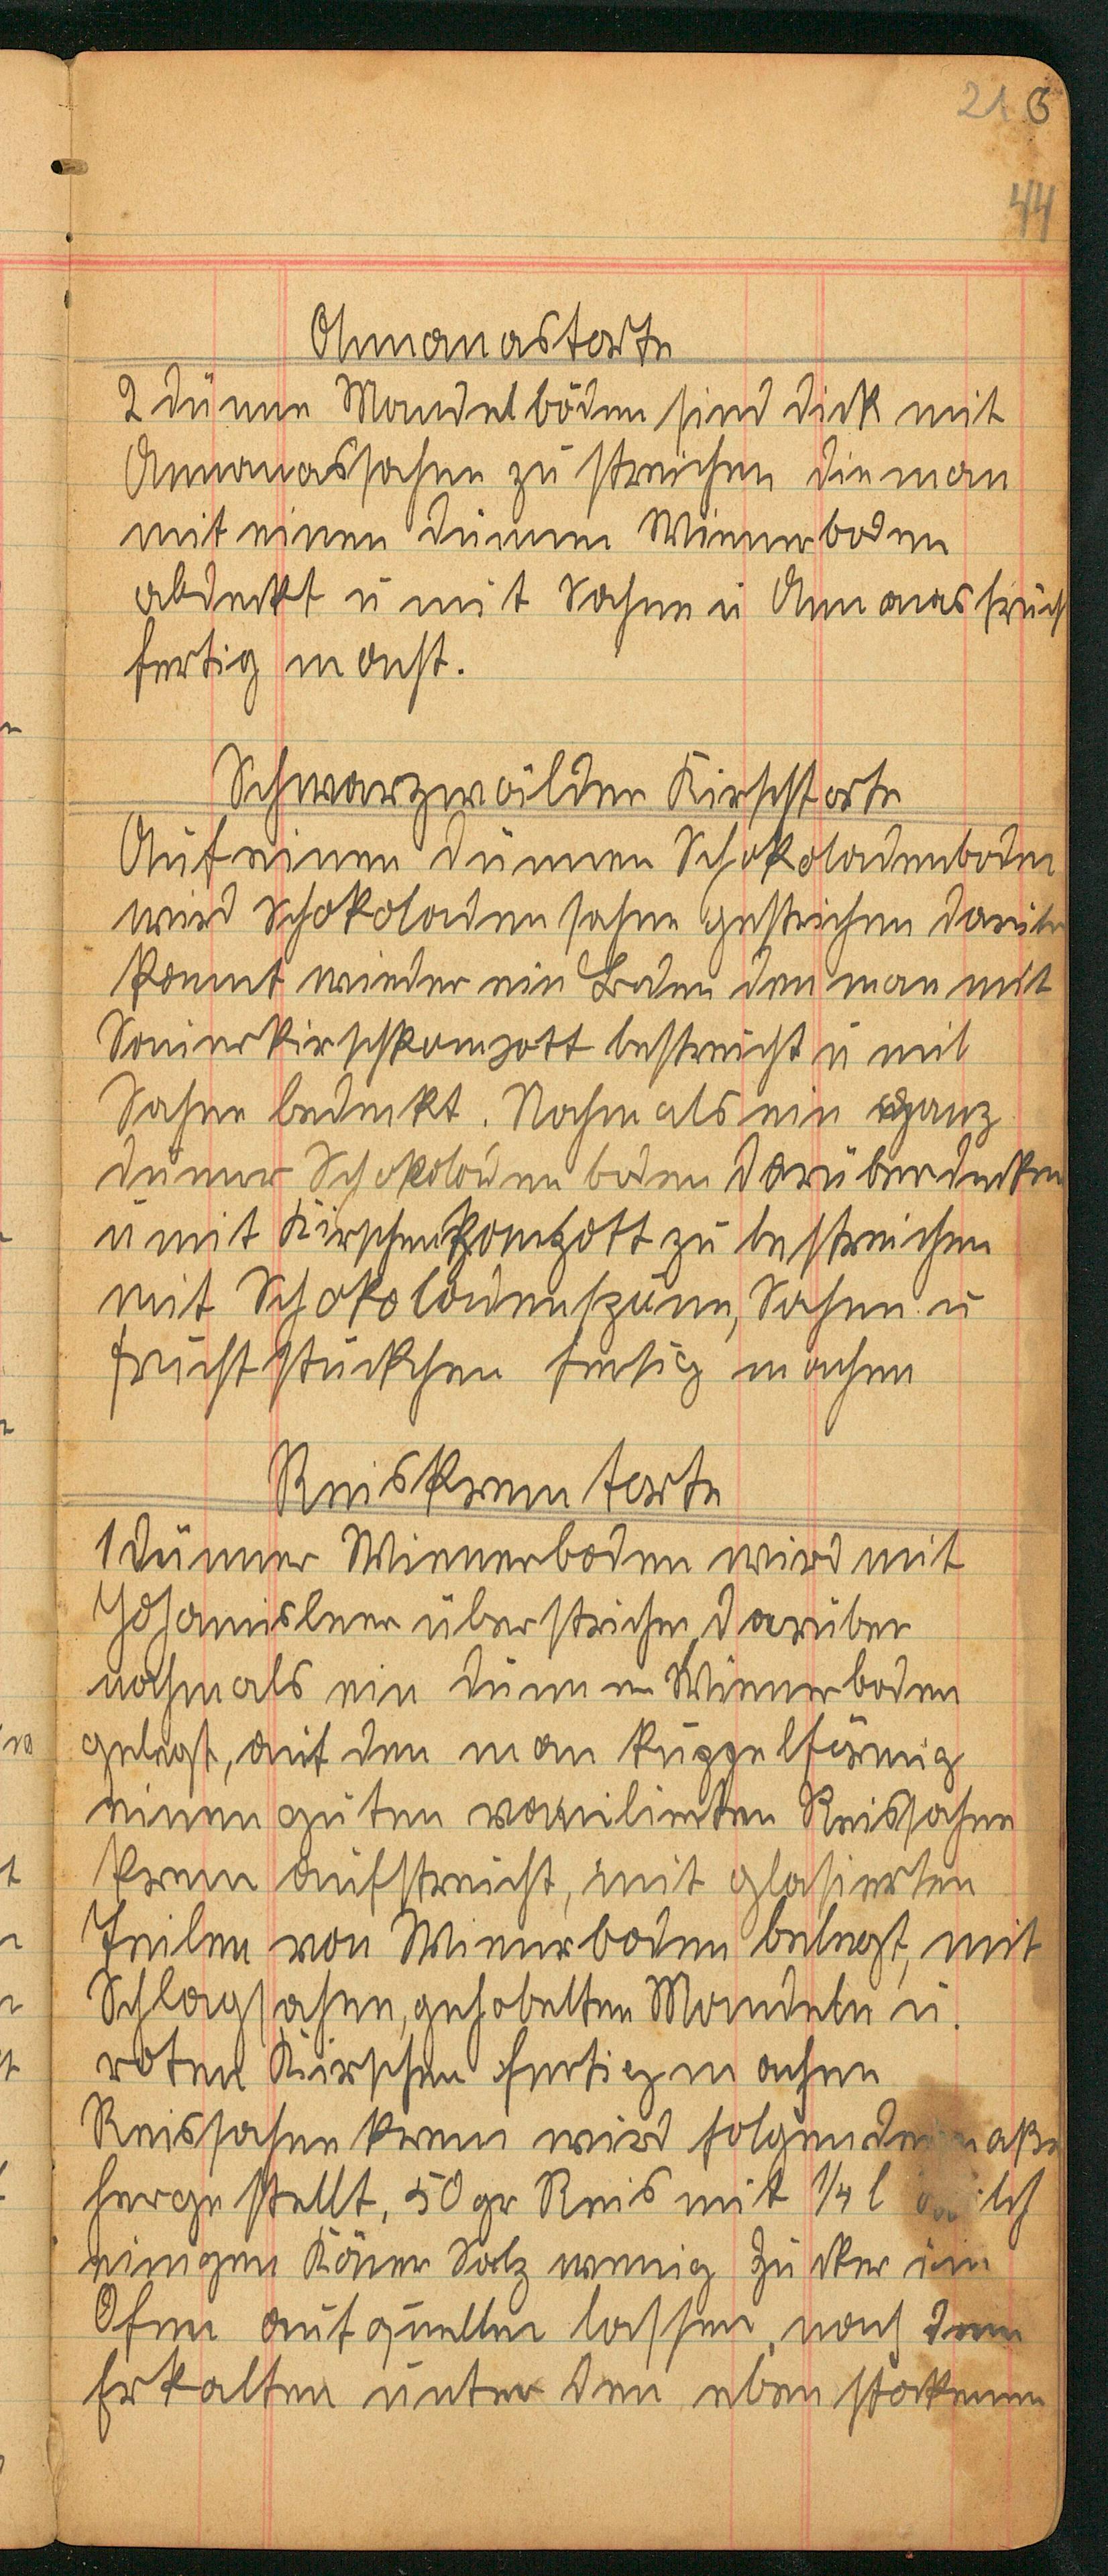 21 6
44
Annanastorte
2 dünne Mandelböden sind dick mit
Annanassahne zu streichen die man
mit einen dünnen Wienerboden
abdeckt u mit Sahne u Annanasfrüch
fertig macht.
Schwarzwälder Kirschtorte
Auf einen dünnen Schokoladenboden
wird Schokoladensahne gestrichen darüber
kommt wieder ein Boden den man mit
Sauerkirschkompott bestreicht u mit
Sahne bedeckt. Nochmals ein ganz
dünner Schokoladenboden darüberdecken
u mit Kirschenkompott zu bestreichen
mit Schokoladenspäne, Sahne u
Fruchtstückchen fertig machen
Reiskremtorte
1 dünner Wienerboden wird mit
Johannisbeer überstrichen, darüber
nochmals ein dünnen Wienerboden
gelegt, auf den man kuppelförmig
einen guten vanilierten Reissahne
krem aufstreicht, mit glasierten
Teilen von Wienerboden belegt, mit
Schlagsahne, gehobelten Mandeln u.
roten Kirschen fertigmachen
Reissahnekrem wird folgendermaße
hergestellt, 50 gr Reis mit 1/4 l Milch
einigen Köner Salz wenig Zucker im
Ofen aufquellen lassen, nach dem
Erkalten unter den eben stockenen